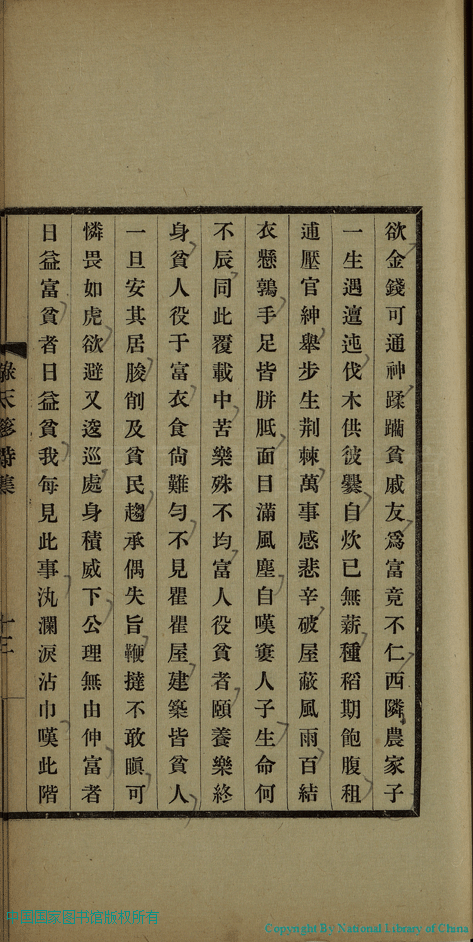 欲金錢可通神蹂躪貧戚友爲富竟不仁西隣農家子
一生遇邅迍伐木供彼爨自炊已無薪種稻期飽腹租
逋壓官紳舉步生荆棘萬事感悲辛破屋蔽風雨百結
衣懸鶉手足皆胼胝面目滿風塵自嘆寠人子生命何
不辰同此覆載中苦樂殊不均富人役貧者頤養樂終
身貧人役于富衣食尙難勻不見瞿瞿屋建築皆貧人
一旦安其居朘削及貧民趨承偶失旨鞭撻不敢瞋可
憐畏如虎欲避又逡巡處身積威下公理無由伸富者
日益富貧者日益貧我每見此事汍瀾淚沾巾嘆此階
詩集
十三
中国国家图书馆版权所有
Copyright By National Library of China